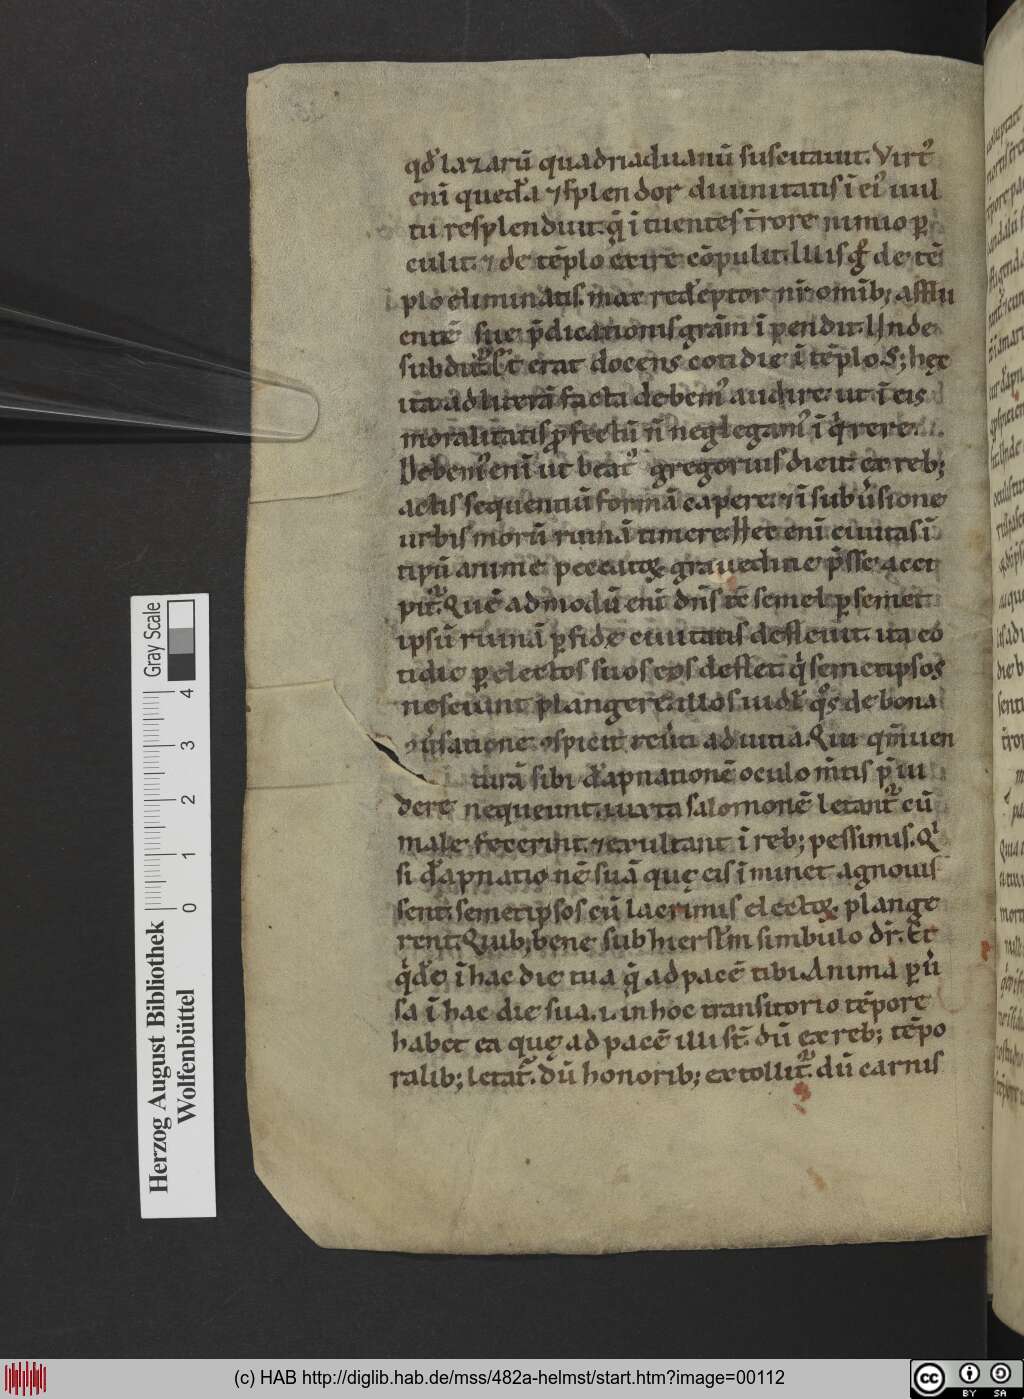 qđ lazarū quadriaduanū suscitauit. Virt᾽
eni̅ queda̅ ⁊ splendor diuinitatis i̅ ei᾽ uul
tu resplenduit. q̄ i̅tuentes t̅rore nimio ꝑ
culit. ⁊ de te̅plo exire co̅pulit. Illis g̊ de te̅
plo eliminatis. mox rede̅ptor nr̅ omib; afflu
ente̅ sue p̅dicationis gr̅am i̅pendit. Unde
subdit᾽. Et erat docens cotidie i̅ te̅plo. S; hęc
ita ad litera̅ facta debem᾽ audire ut i̅ eis
moralitatis ꝓfectu̅ n̅ neglegam᾽ i̅q̊rere.
Debem᾽ eni̅ ut beat᾽ gregorius dicit. ex reb;
actis sequentiu̅ forma̅ capere. ⁊ i̅ subu̅sione
urbis moru̅ ruina̅ timere. Hec eni̅ ciuitas i̅
tipu̅ anime peccatꝝ grauedine p̅sse acci
pit᾽. Que̅admodu̅ eni̅ dn̅s tc̅ semel ꝑ semet
ipsu̅ ruina̅ ꝑfide ciuitatis defleuit. ita co
tidie ꝑ electos suos eos deflet. q̊ semetipsos
nesciunt plangere. illos uidl᾽ q̊s de bona
ↄu̅satione ↄspicit reu̅ti ad uitia. Qui qm̅ uen
tura̅ sibi da̅pnatione̅ oculo m̅tis p̅ui
dere nequeunt. iuxta salomone̅ letant᾽ cu̅
male fecerint. ⁊ exultant i̅ reb; pessimis. Qͥ
si da̅pnatione̅ sua̅ quę eis i̅minet agnouis
sent. semetipsos cu̅ lacrimis electoꝝ plange
rent. Quib; bene sub hierłm simbulo dr̅. Et
q̊de̅ i̅ hac die tua q̄ ad pace̅ tibi. Anima ꝑu̅
sa i̅ hac die sua .i. in hoc transitorio te̅pore
habet ea quę ad pace̅ illi st̅. du̅ ex reb; te̅po
ralib; letat᾽. du̅ honorib; extollit᾽. du̅ carnis
Gray Scale
4
3
2
1
0
Herzog August Bibliothek
Wolfenbüttel
(c) HAB http://diglib.hab.de/mss/482a-helmst/start.htm?image=00112
cc BY SA